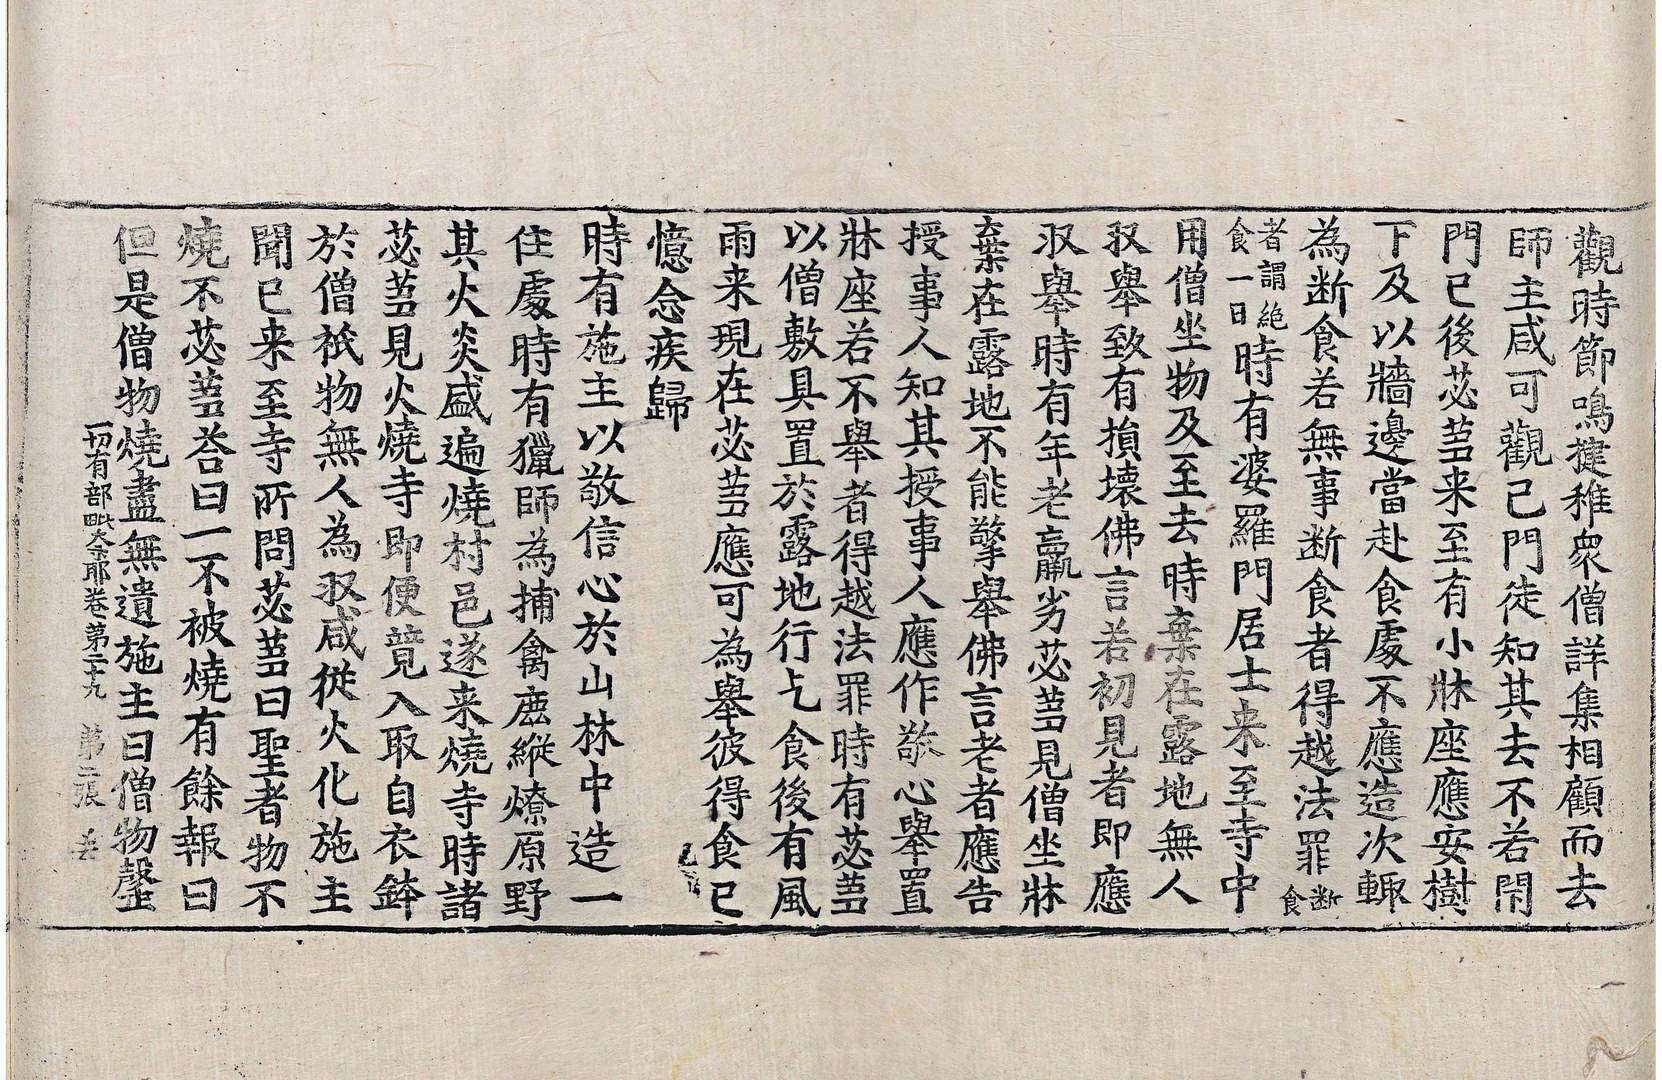 觀時節鳴揵稚衆僧詳集相顧而去
師主咸可觀己門徒知其去不若閇
門已後苾蒭来至有小牀座應安樹
下及以牆邊當赴食處不應造次輙
為断食若無事断食者得越法罪断食
者謂絶食一日時有婆羅門居士来至寺中
用僧坐物及至去時棄在露地無人
収舉致有損壞佛言若初見者即應
収舉時有年老羸劣苾蒭見僧坐牀
棄在露地不能擎舉佛言老者應告
授事人知其授事人應作敬心舉置
牀座若不舉者得越法罪時有苾蒭
以僧敷具置於露地行乞食後有風
雨来現在苾蒭應可為舉彼得食已
憶念疾歸
時有施主以敬信心於山林中造一
住處時有獵師為捕禽鹿縱燎原野
其火炎盛遍燒村邑遂来燒寺時諸
苾蒭見火燒寺即便競入取自衣鉢
於僧祇物無人為収咸從火化施主
聞已来至寺所問苾蒭曰聖者物不
燒不苾蒭荅曰一不被燒有餘報曰
但是僧物燒盡無遺施主曰僧物罄
一切有部毗奈耶卷第二十九 第二張